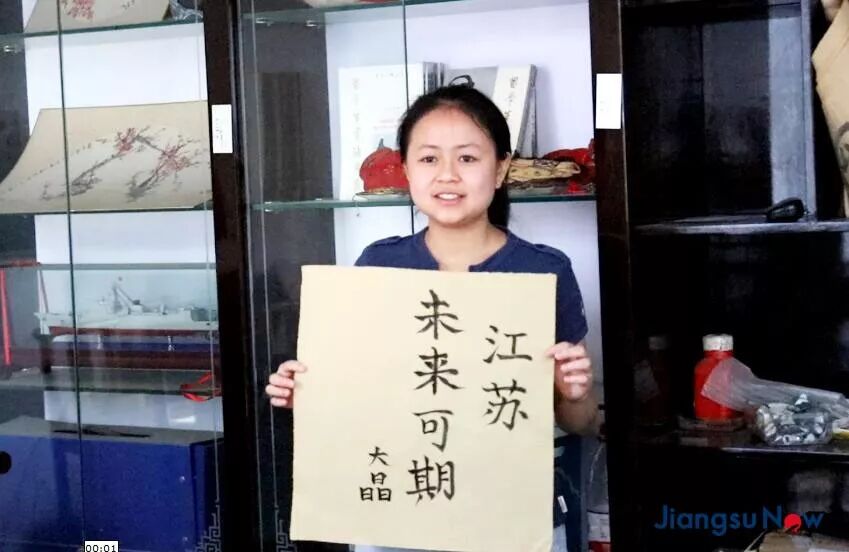 江苏
未来可期
大晶
Jiangsu Now
00:01